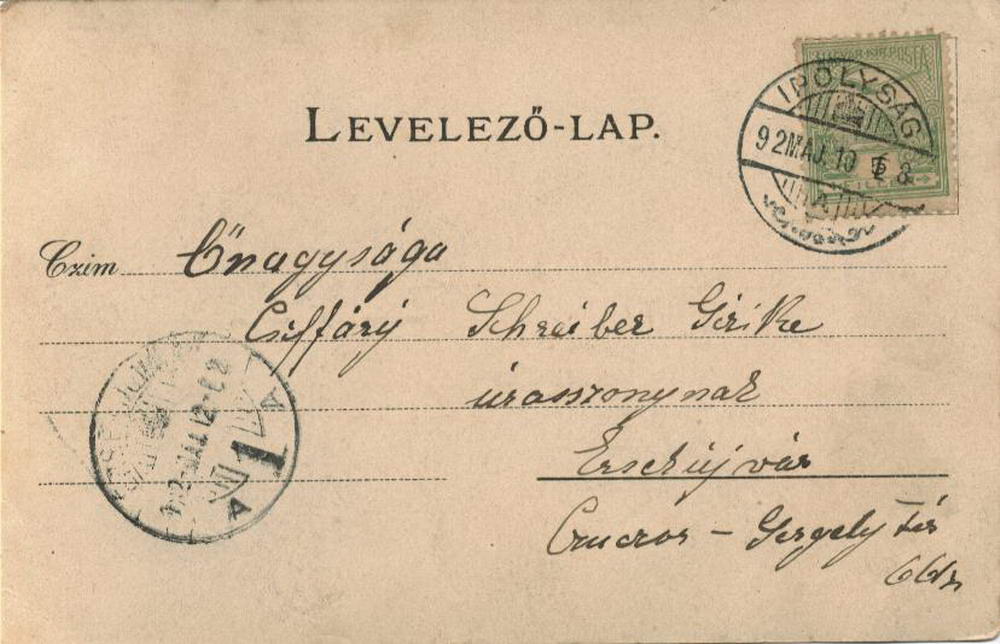 LEVELEZŐ-LAP.
MAGYAR KIR. POSTA
IPOLYSÁG
92 MÁJ. 10
Czim Őnagysága
Csiffáry Schreiber Gizike
úrasszonynak
Érsekújvár
Czuczor - Gergely tér